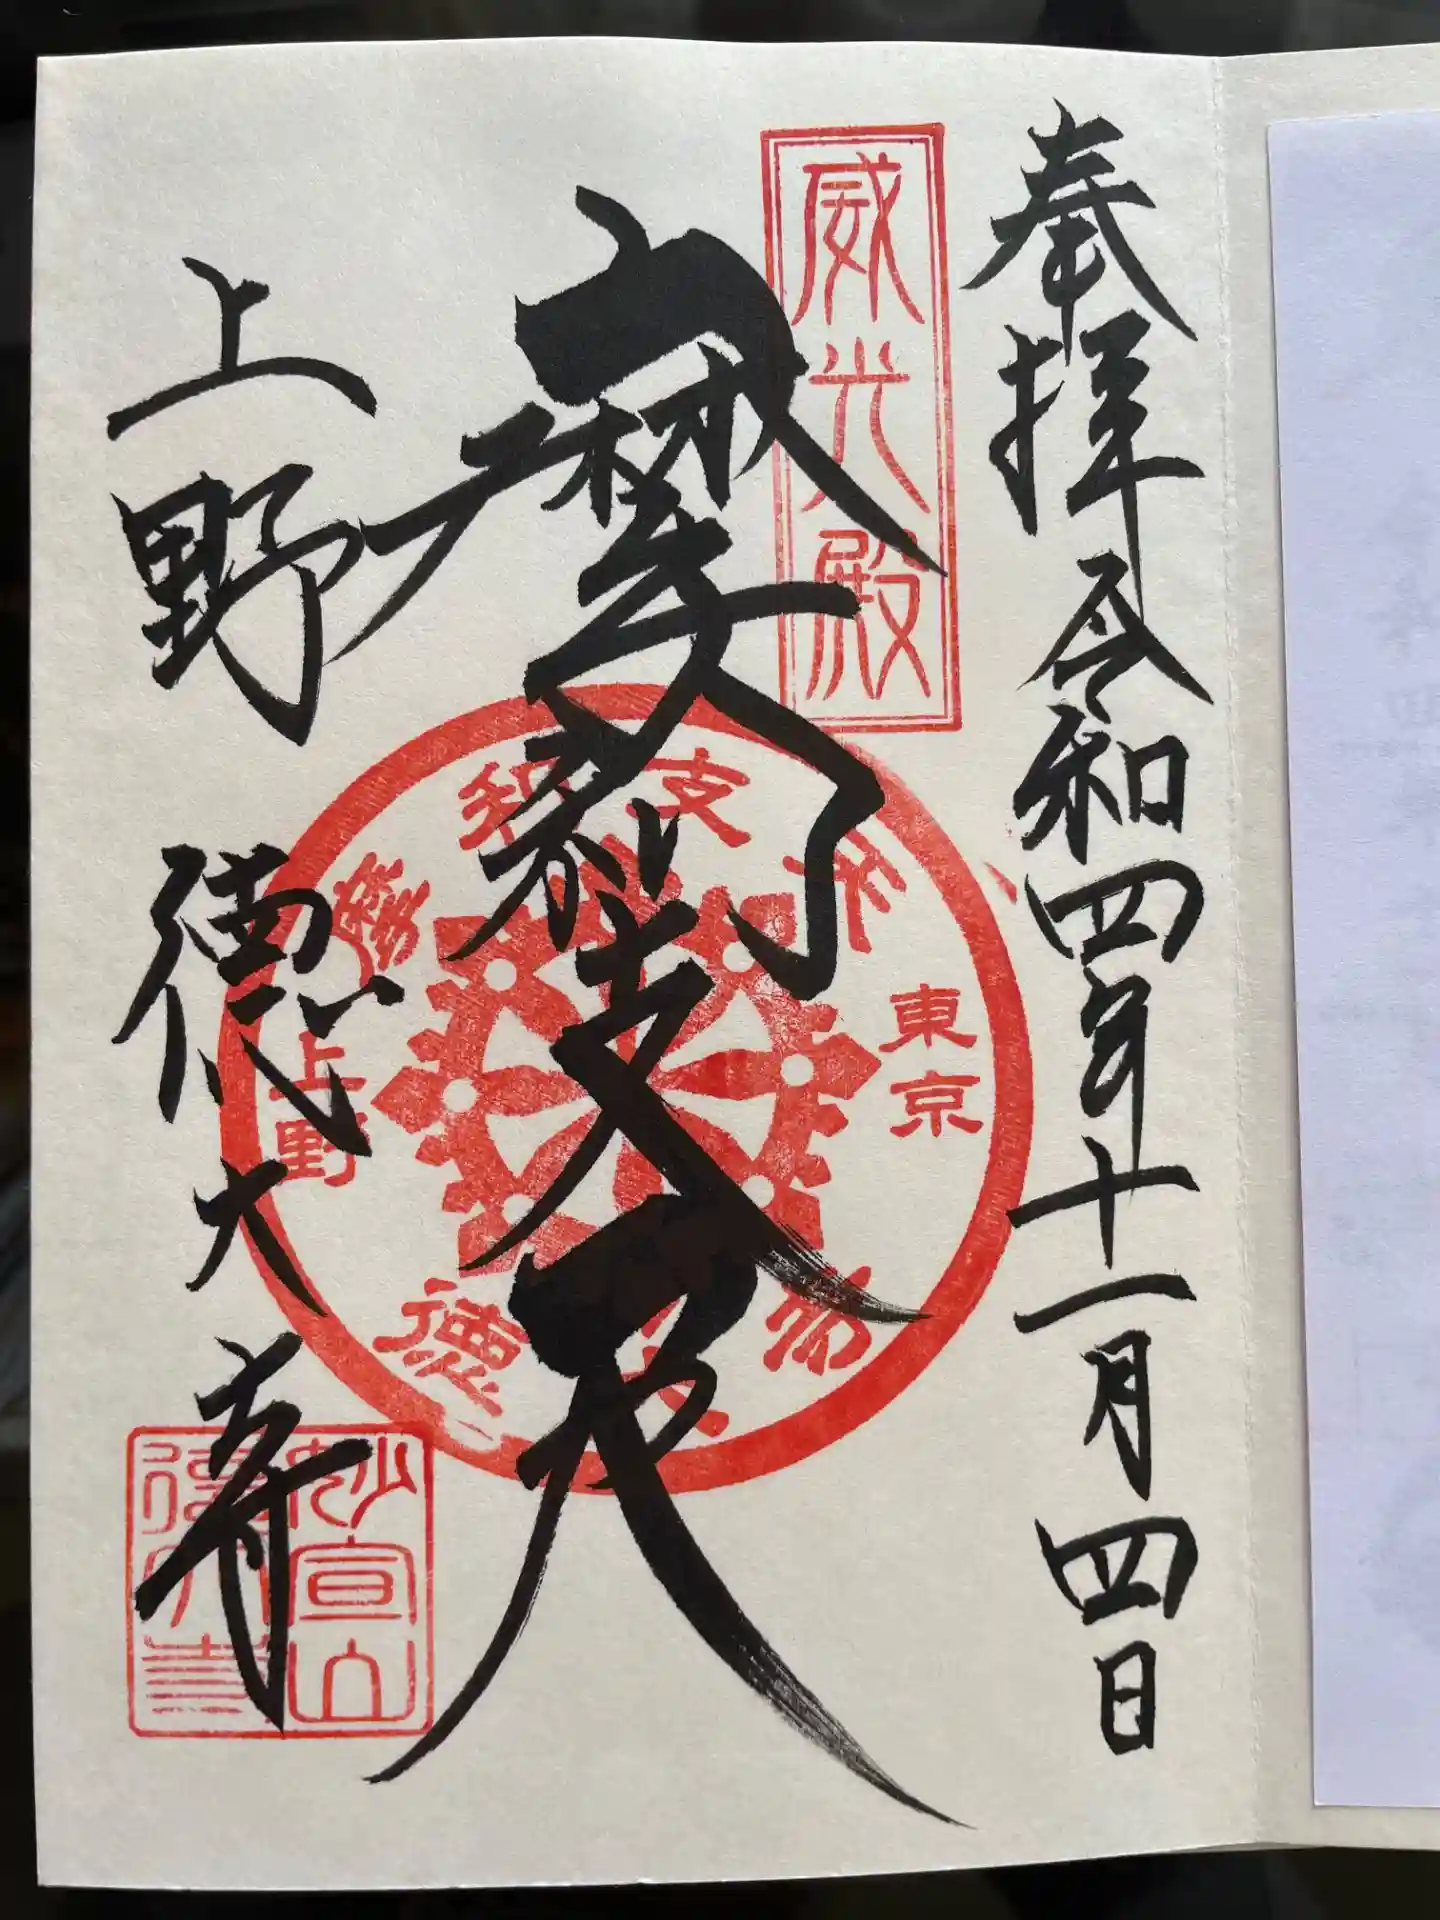 奉拝 令和四年十一月四日
威光殿
摩利支天
上野 徳大寺
摩利支天
東京
上野
徳大寺
妙宣山
徳大寺